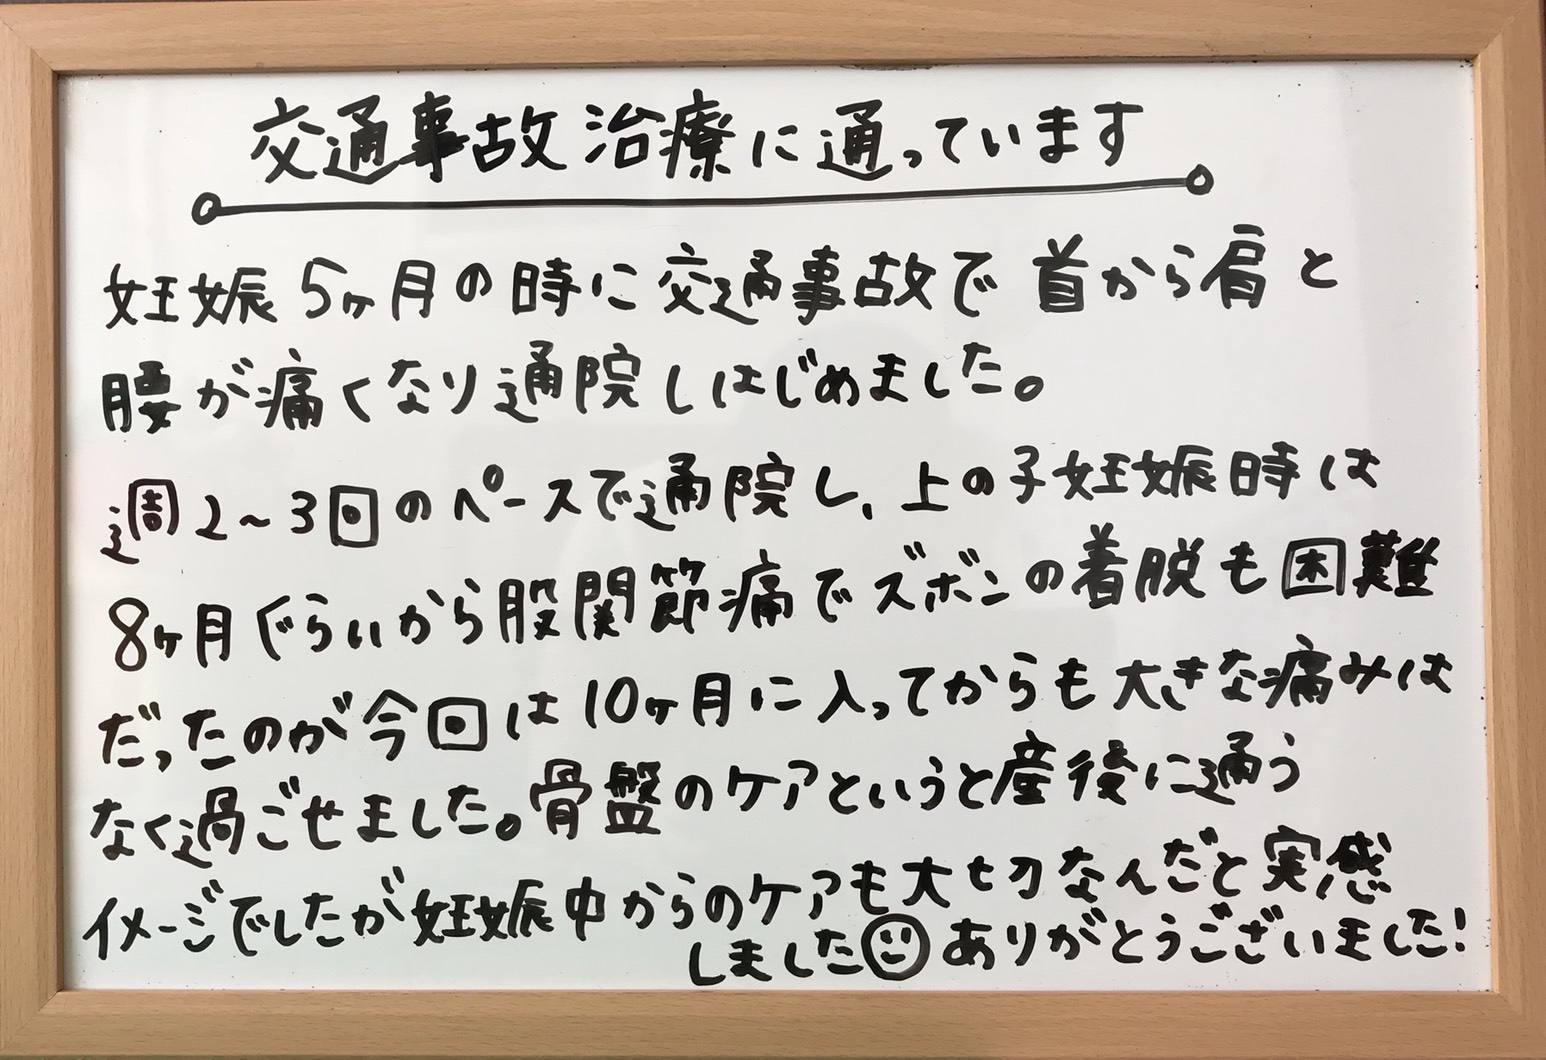 交通事故治療に通っています
妊娠5ヶ月の時に交通事故で首から肩と
腰が痛くなり通院しはじめました。
週2~3回のペースで通院し、上の子妊娠時は
8ヶ月ぐらいから股関節痛でズボンの着脱も困難
だったのが今回は10ヶ月に入ってからも大きな痛みは
なく過ごせました。骨盤のケアというと産後に通う
イメージでしたが妊娠中からのケアも大切なんだと実感
しました☺ありがとうございました!